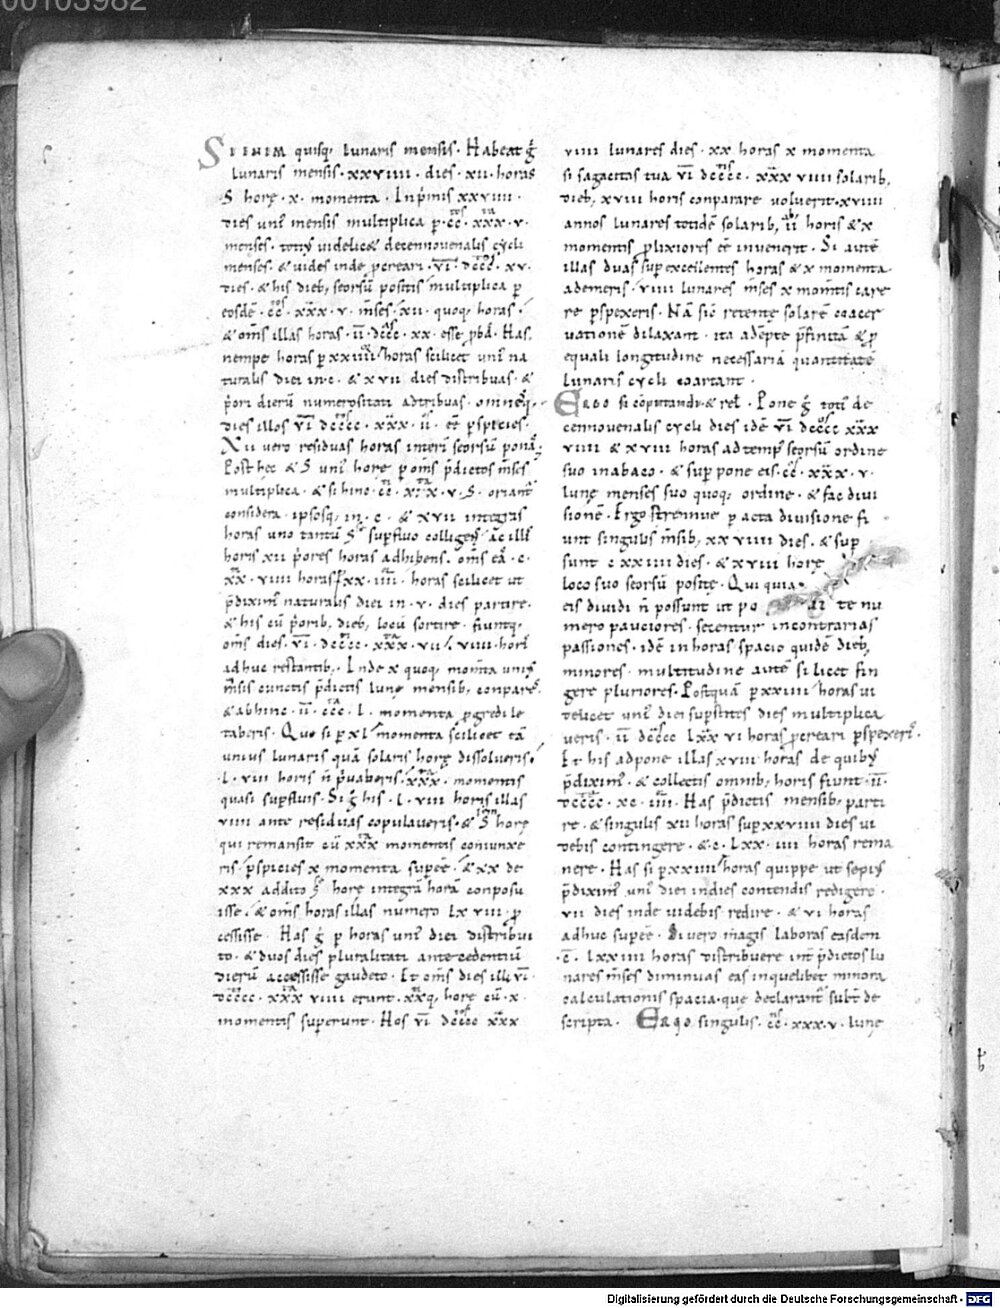 00103982
SI ENIM quisq; lunaris mensis. Habeat g̃
lunaris mensis. xxviiii. dies. xii. horas
S horę. x. momenta. Inp̃mis xxviiii.
dies uni᾿ mensis multiplica p. cc. xxx. v.
menses. toti᾿ uidelic& decennouenalis cycli
menses. & uides inde pcreari. vi. dccc. xv.
dies. & his dieb; seorsū positis multiplica p
eosdē. cc. xxx. v. m̄ses. xii. quoq; horas.
& om̄s illas horas. ii. dccc. xx. esse p̱bā. Has
nempe horas p xxiiii horas scilicet uni᾿ na
turalis diei in. c. & xvii dies distribuas. &
p̃ori dierū numerositati adtribuas. omneq;
dies illos vi dcccc. xxx. ii. eē pspicies.
Xii vero residuas horas interī seorsū ponā;
Post hec & S uni᾿ horę p om̄s p̃dictos m̄ses
multiplica. & si hinc. cc. xxx. v. S. oriant̃
considera. ipsosq; in. c. & xvii integras
horas uno tantū S supfluo colliges ac illi᾿
horis xii p̃ores horas adhibens. om̄s eā. c.
xx. viiii horas p xx. iiii. horas scilicet ut
p̃diximᷤ naturalis diei in. v. dies partire.
& his cū p̃orib; dieb; locū sortire. fiuntq;
om̄s dies. vi. dcccc. xxx. vii. viiii. hori᾿
adhuc restantib; Inde x quoq; mom̄ta uni᾿
m̄sis cunctis p̃dictis lunę mensib; conpares.
& abhinc. ii. ccc. l. momenta pgredi le
taberis. Quo si p xl momenta scilicet tā
unius lunaris quā solaris horę dissolueris.
l. viii horis ñ p̃uaberis. xxx. momentis
quasi supfluis. Si g̃ his. l. viii horis illas
viiii ante residuas copulaueris. & S horę
qui remansit cū xxx momentis coniunxe
ris. p̱spicies x momenta supeē. & xx de
xxx addito S horę integrā horā conposu
isse. & om̄s horas illas numero lx viii p̱
cessisse. Has g̃ p horas uni᾿ diei distribui
to. & duos dies pluralitati antecedentiū
dierū accessisse gaudeto. Et om̄s dies illi vi.
dcccc. xxx viiii erunt. xxq; horę cū. x.
momentis superunt. Hos vi dcccc xxx
viiii lunares dies. xx horas x momenta
si sagacitas tua vi dcccc. xxx viiii solarib;
dieb; xviii horis conparare uoluerit. xviiii
annos lunares totidē solarib; ii horis & x
momentis p̱lixiores eē inuenerit. Si autē
illas duas sup excellentes horas & x momenta
ademeris. viiii lunares m̄ses x mom̄tis care
re pspexeris. Nā sic̄ retentę solarē coacer
uationē dilaxant. ita adēpte p̃finitā & p̱
equali longitudine necessariā quantitatē
lunaris cycli coartant.
ERGO si cōputandū & rel. Pone g̃ toti᾿ de
cennouenalis cycli dies idē vi dcccc xxx
viiii & xviii horas ad temp᾿ seorsū ordine
suo in abaco. & sup pone eis. cc. xxx. v.
lunę menses suo quoq; ordine. & fac diui
sionē. Ergo strennue p acta diuisione fi
unt singulis m̄sib; xx viiii dies. & sup
sunt c xxiiii dies. & xviii horę
loco suo seorsū positę. Qui quia
eis diuidi ñ possunt ut po te nu
mero pauciores. secentur in contrarias
passiones. idē in horas spacio quidē dieb;
minores. multitudine autē si licet fin
gere pluriores. Postquā p xxiiii horas ui
delicet uni᾿ diei supstites dies multiplica
ueris. ii dcccc lxx vi horas pcreari pspexeri᾿.
Et his adpone illas xviii horas de quiby
p̃diximᷤ. & collectis omnib; horis fiunt. ii.
dcccc. xc. iiii. Has p̃dictis mensib; parti
re. & singulis xii horas sup xxviiii dies ui
debis contingere. & c. lxx. iiii horas rema
nere. Has si p xxiiii horas quippe ut sepi᾿
p̃diximᷤ uni᾿ diei in dies contendis redigere.
vii dies inde uidebis redire. & vi horas
adhuc supeē. Si vero magis laboras easdem
. c. lxxiiii horas distribuere int̃ p̃dictos lu
nares m̄ses diminuas eas in quelibet minora
calculationis spacia. quę declarant̃ subt̃ de
scripta. ERGO singulis. cc. xxx. v. lunę
Digitalisierung gefördert durch die Deutsche Forschungsgemeinschaft - DFG